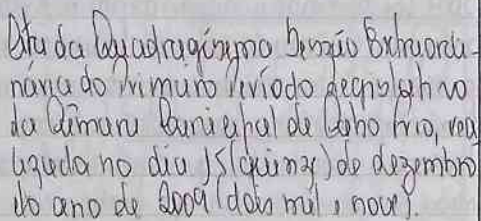 Ata da Quadragésima Sessão Extraordi-
nária do Primeiro Período Legislativo
da Câmara Municipal de Cabo Frio, rea
lizada no dia 15 (quinze) de dezembro
do ano de 2009 (dois mil e nove).